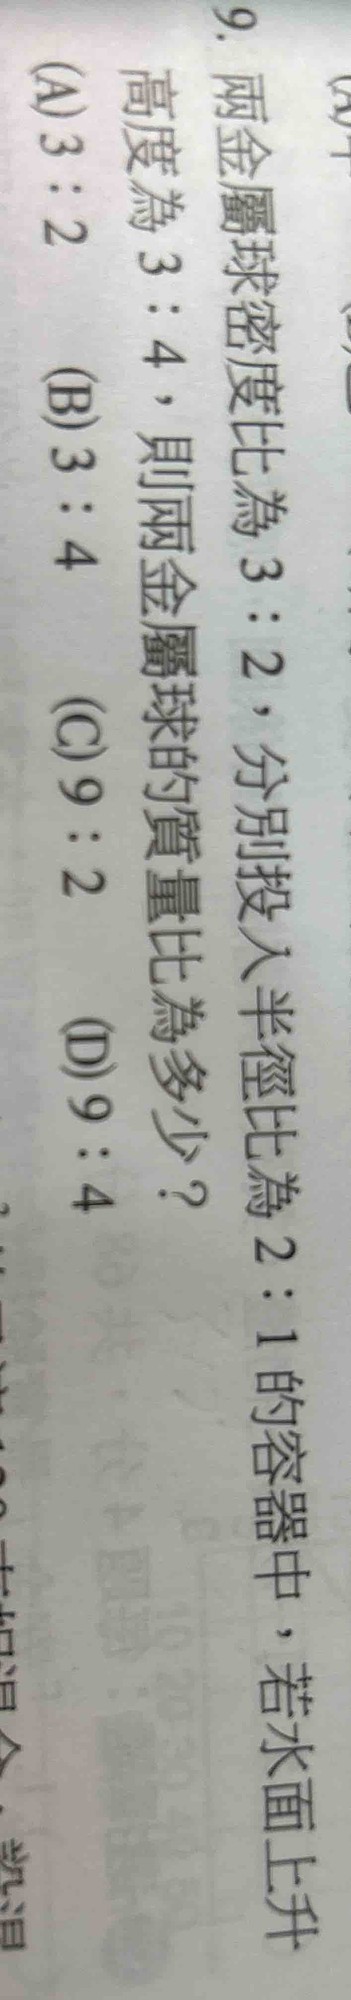 9. 兩金屬球密度比為 3：2，分別投入半徑比為 2：1 的容器中，若水面上升
高度為 3：4，則兩金屬球的質量比為多少？
(A) 3：2 (B) 3：4 (C) 9：2 (D) 9：4